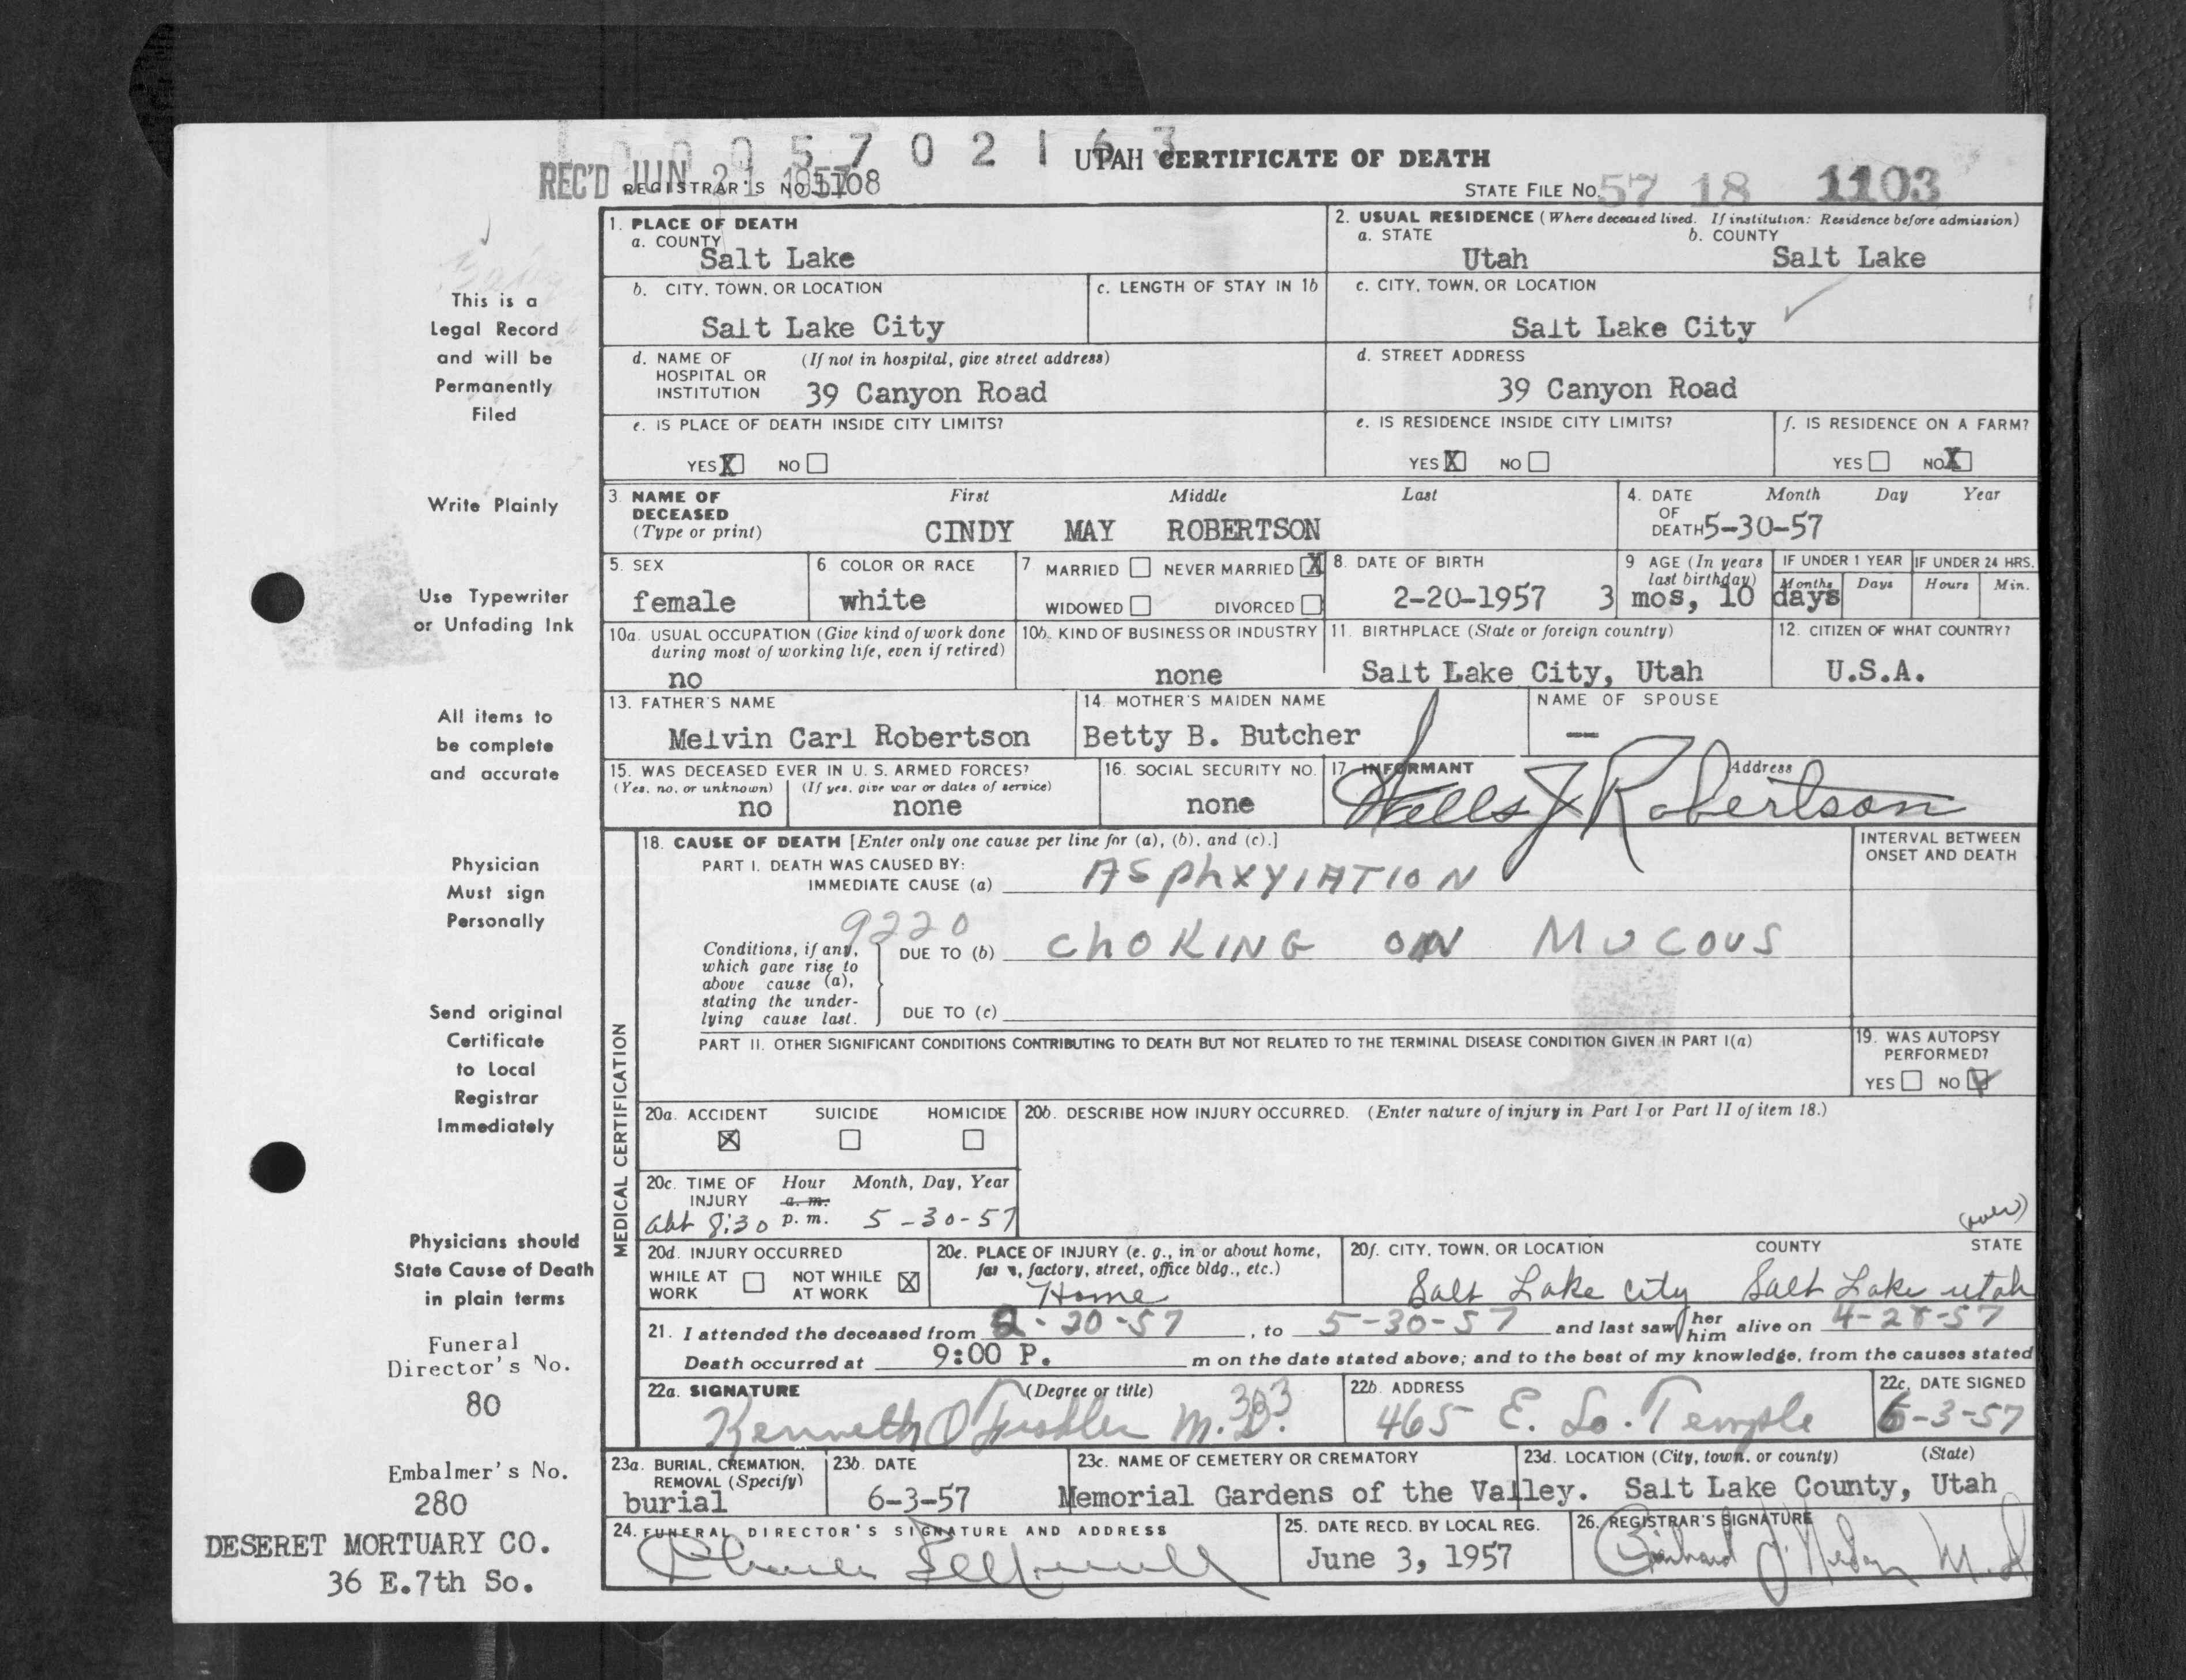 1 0 0 5 7 0 2 1 6 3
UTAH CERTIFICATE OF DEATH
REC'D JUN 21 1957
REGISTRAR'S NO. 1108
STATE FILE NO. 57 18 1103
This is a
Legal Record
and will be
Permanently
Filed
Write Plainly
Use Typewriter
or Unfading Ink
All items to
be complete
and accurate
Physician
Must sign
Personally
Send original
Certificate
to Local
Registrar
Immediately
Physicians should
State Cause of Death
in plain terms
Funeral
Director's No.
80
Embalmer's No.
280
DESERET MORTUARY CO.
36 E.7th So.
1. PLACE OF DEATH
a. COUNTY
Salt Lake
2. USUAL RESIDENCE (Where deceased lived. If institution: Residence before admission)
a. STATE b. COUNTY
Utah Salt Lake
b. CITY, TOWN, OR LOCATION
Salt Lake City
c. LENGTH OF STAY IN 1b
c. CITY, TOWN, OR LOCATION
Salt Lake City
d. NAME OF (If not in hospital, give street address)
HOSPITAL OR
INSTITUTION 39 Canyon Road
d. STREET ADDRESS
39 Canyon Road
e. IS PLACE OF DEATH INSIDE CITY LIMITS?
YES X NO
e. IS RESIDENCE INSIDE CITY LIMITS?
YES X NO
f. IS RESIDENCE ON A FARM?
YES NO X
3. NAME OF First Middle Last
DECEASED
(Type or print) CINDY MAY ROBERTSON
4. DATE Month Day Year
OF
DEATH 5-30-57
5. SEX
female
6 COLOR OR RACE
white
7 MARRIED NEVER MARRIED X
WIDOWED DIVORCED
8. DATE OF BIRTH
2-20-1957
9 AGE (In years
last birthday)
IF UNDER 1 YEAR IF UNDER 24 HRS.
Months Days Hours Min.
3 mos, 10 days
10a. USUAL OCCUPATION (Give kind of work done
during most of working life, even if retired)
no
10b. KIND OF BUSINESS OR INDUSTRY
none
11. BIRTHPLACE (State or foreign country)
Salt Lake City, Utah
12. CITIZEN OF WHAT COUNTRY?
U.S.A.
13. FATHER'S NAME
Melvin Carl Robertson
14. MOTHER'S MAIDEN NAME
Betty B. Butcher
NAME OF SPOUSE
—
15. WAS DECEASED EVER IN U. S. ARMED FORCES?
(Yes, no, or unknown) (If yes, give war or dates of service)
no none
16. SOCIAL SECURITY NO.
none
17. INFORMANT Address
Wells J Robertson
18. CAUSE OF DEATH [Enter only one cause per line for (a), (b), and (c).]
PART I. DEATH WAS CAUSED BY:
IMMEDIATE CAUSE (a) ASPhXYIATION
INTERVAL BETWEEN
ONSET AND DEATH
9220
Conditions, if any,
which gave rise to
above cause (a),
stating the under-
lying cause last.
DUE TO (b) ChOKING ON MUCOUS
DUE TO (c)
PART II. OTHER SIGNIFICANT CONDITIONS CONTRIBUTING TO DEATH BUT NOT RELATED TO THE TERMINAL DISEASE CONDITION GIVEN IN PART I(a)
19. WAS AUTOPSY
PERFORMED?
YES NO
MEDICAL CERTIFICATION
20a. ACCIDENT SUICIDE HOMICIDE
X
20b. DESCRIBE HOW INJURY OCCURRED. (Enter nature of injury in Part I or Part II of item 18.)
(over)
20c. TIME OF Hour Month, Day, Year
INJURY a. m.
abt 8:30 p. m. 5-30-57
20d. INJURY OCCURRED
WHILE AT NOT WHILE
WORK AT WORK X
20e. PLACE OF INJURY (e. g., in or about home,
farm, factory, street, office bldg., etc.)
Home
20f. CITY, TOWN, OR LOCATION COUNTY STATE
Salt Lake City Salt Lake Utah
21. I attended the deceased from 2-20-57, to 5-30-57 and last saw her him alive on 4-28-57
Death occurred at 9:00 P. m on the date stated above; and to the best of my knowledge, from the causes stated
22a. SIGNATURE (Degree or title)
Kenneth M.D. 303
22b. ADDRESS
465 E. So. Temple
22c. DATE SIGNED
6-3-57
23a. BURIAL, CREMATION,
REMOVAL (Specify)
burial
23b. DATE
6-3-57
23c. NAME OF CEMETERY OR CREMATORY
Memorial Gardens of the Valley.
23d. LOCATION (City, town, or county) (State)
Salt Lake County, Utah
24. FUNERAL DIRECTOR'S SIGNATURE AND ADDRESS
25. DATE RECD. BY LOCAL REG.
June 3, 1957
26. REGISTRAR'S SIGNATURE
M.D.